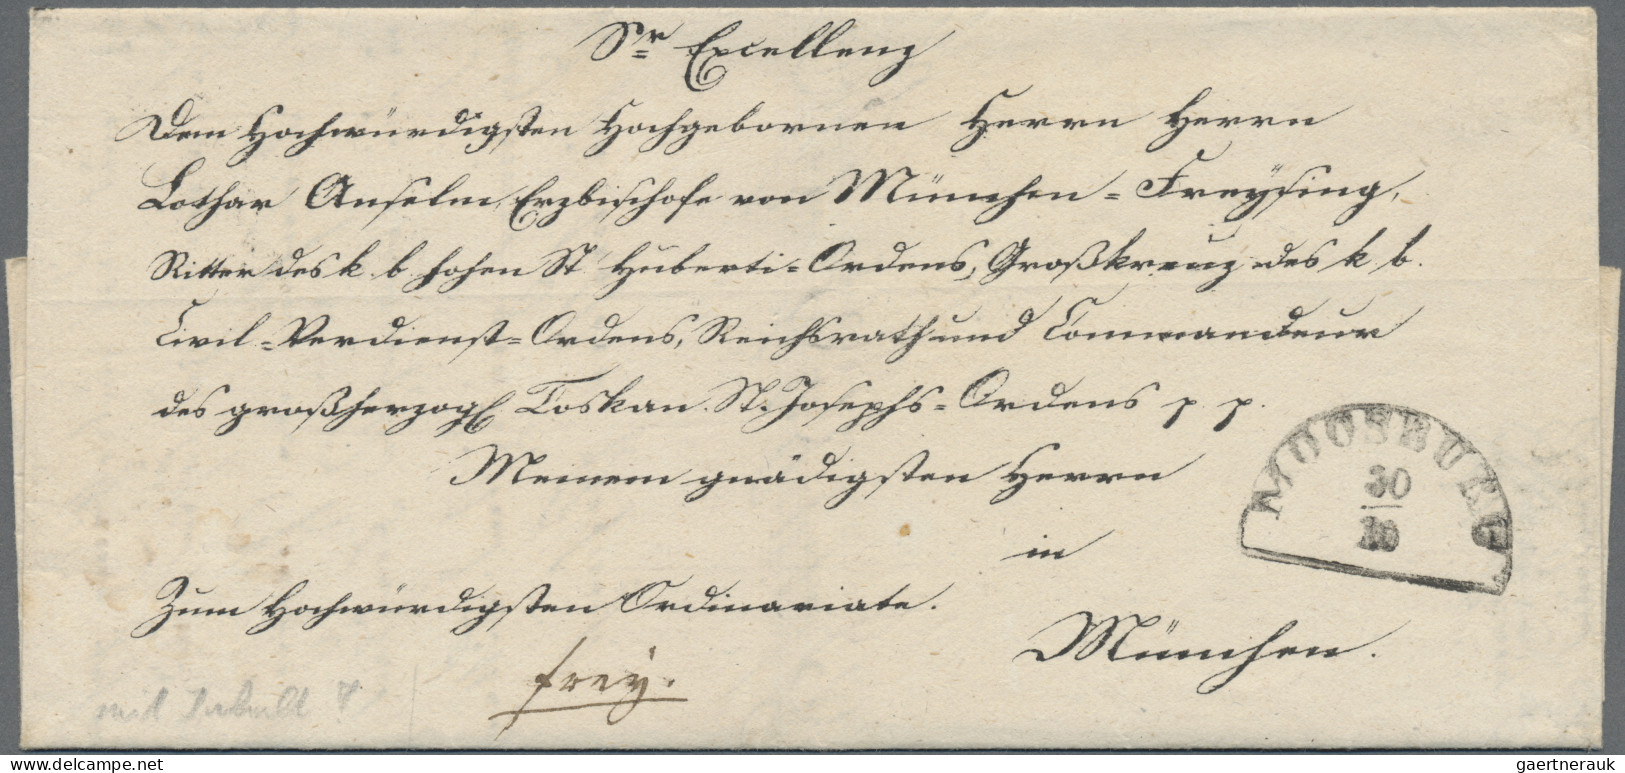 Sr Excellenz
Dem Hochwürdigsten Hochgebornen Herrn Herrn
Lothar Anselm, Erzbischofe von München=Freysing,
Ritter des k. b. hohen St. Huberti=Ordens, Großkreuz des k. b.
Civil=Verdienst=Ordens, Reichsrath und Commandeur
des großherzogl. Toskan. St. Josephs=Ordens p. p.
Meinem gnädigsten Herrn
in
Zum Hochwürdigsten Ordinariate.
München.
frey.
MOOSBURG
30
10
mit Inhalt
www.delcampe.net
gaertnerauk